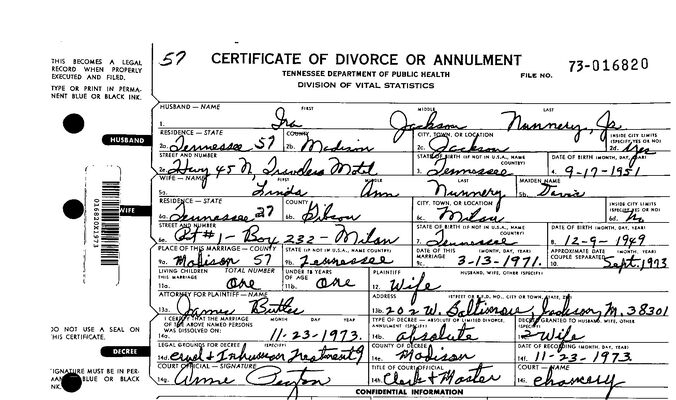 57 CERTIFICATE OF DIVORCE OR ANNULMENT
TENNESSEE DEPARTMENT OF PUBLIC HEALTH FILE NO. 73-016820
DIVISION OF VITAL STATISTICS
THIS BECOMES A LEGAL
RECORD WHEN PROPERLY
EXECUTED AND FILED.
TYPE OR PRINT IN PERMA-
NENT BLUE OR BLACK INK.
HUSBAND — NAME FIRST MIDDLE LAST
1. Ira Jackson Nunnery, Jr.
HUSBAND
RESIDENCE – STATE COUNTY CITY, TOWN, OR LOCATION INSIDE CITY LIMITS (SPECIFY YES OR NO)
2a. Tennessee 57 2b. Madison 2c. Jackson 2d. Yes
STREET AND NUMBER STATE OF BIRTH (IF NOT IN U.S.A., NAME COUNTRY) DATE OF BIRTH (MONTH, DAY, YEAR)
2e. Hwy 45 N. Travelers Motel 3. Tennessee 4. 9-17-1951
WIFE — NAME FIRST MIDDLE LAST MAIDEN NAME
Linda Ann Nunnery 5b. Davis
016820X1973
WIFE
RESIDENCE – STATE COUNTY CITY, TOWN, OR LOCATION INSIDE CITY LIMITS (SPECIFY YES OR NO)
6a. Tennessee 27 6b. Gibson 6c. Milan 6d. No
STREET AND NUMBER STATE OF BIRTH (IF NOT IN U.S.A., NAME COUNTRY) DATE OF BIRTH (MONTH, DAY, YEAR)
6e. Rt #1 – Box 232 – Milan 7. Tennessee 8. 12-9-1949
PLACE OF THIS MARRIAGE – COUNTY STATE (IF NOT IN U.S.A., NAME COUNTRY) DATE OF THIS MARRIAGE (MONTH, DAY, YEAR) APPROXIMATE DATE COUPLE SEPARATED
9a. Madison 57 9b. Tennessee 9c. 3-13-1971. 10. Sept. 1973
LIVING CHILDREN TOTAL NUMBER UNDER 18 YEARS OF AGE PLAINTIFF HUSBAND, WIFE, OTHER (SPECIFY)
11a. One 11b. One 12. Wife
ATTORNEY FOR PLAINTIFF – NAME ADDRESS (STREET OR R.F.D. NO., CITY OR TOWN, STATE, ZIP)
13a. James Butler 13b. 202 W. Baltimore, Jackson, 38301
I CERTIFY THAT THE MARRIAGE OF THE ABOVE NAMED PERSONS WAS DISSOLVED ON: MONTH DAY YEAR TYPE OF DECREE – ABSOLUTE OR LIMITED DIVORCE, ANNULMENT (SPECIFY) DECREE GRANTED TO HUSBAND, WIFE, OTHER (SPECIFY)
14a. 11-23-1973. 14b. absolute Wife
DO NOT USE A SEAL ON
THIS CERTIFICATE.
DECREE
LEGAL GROUNDS FOR DECREE (SPECIFY) COUNTY OF DECREE DATE OF RECORDING (MONTH, DAY, YEAR)
14d. Cruel + Inhuman Treatment 9 14e. Madison 14f. 11-23-1973.
SIGNATURE MUST BE IN PER-
MANENT BLUE OR BLACK
INK.
COURT OFFICIAL – SIGNATURE TITLE OF COURT OFFICIAL COURT – NAME
14g. Anne Peyton 14h. Clerk + Master 14i. Chancery
CONFIDENTIAL INFORMATION